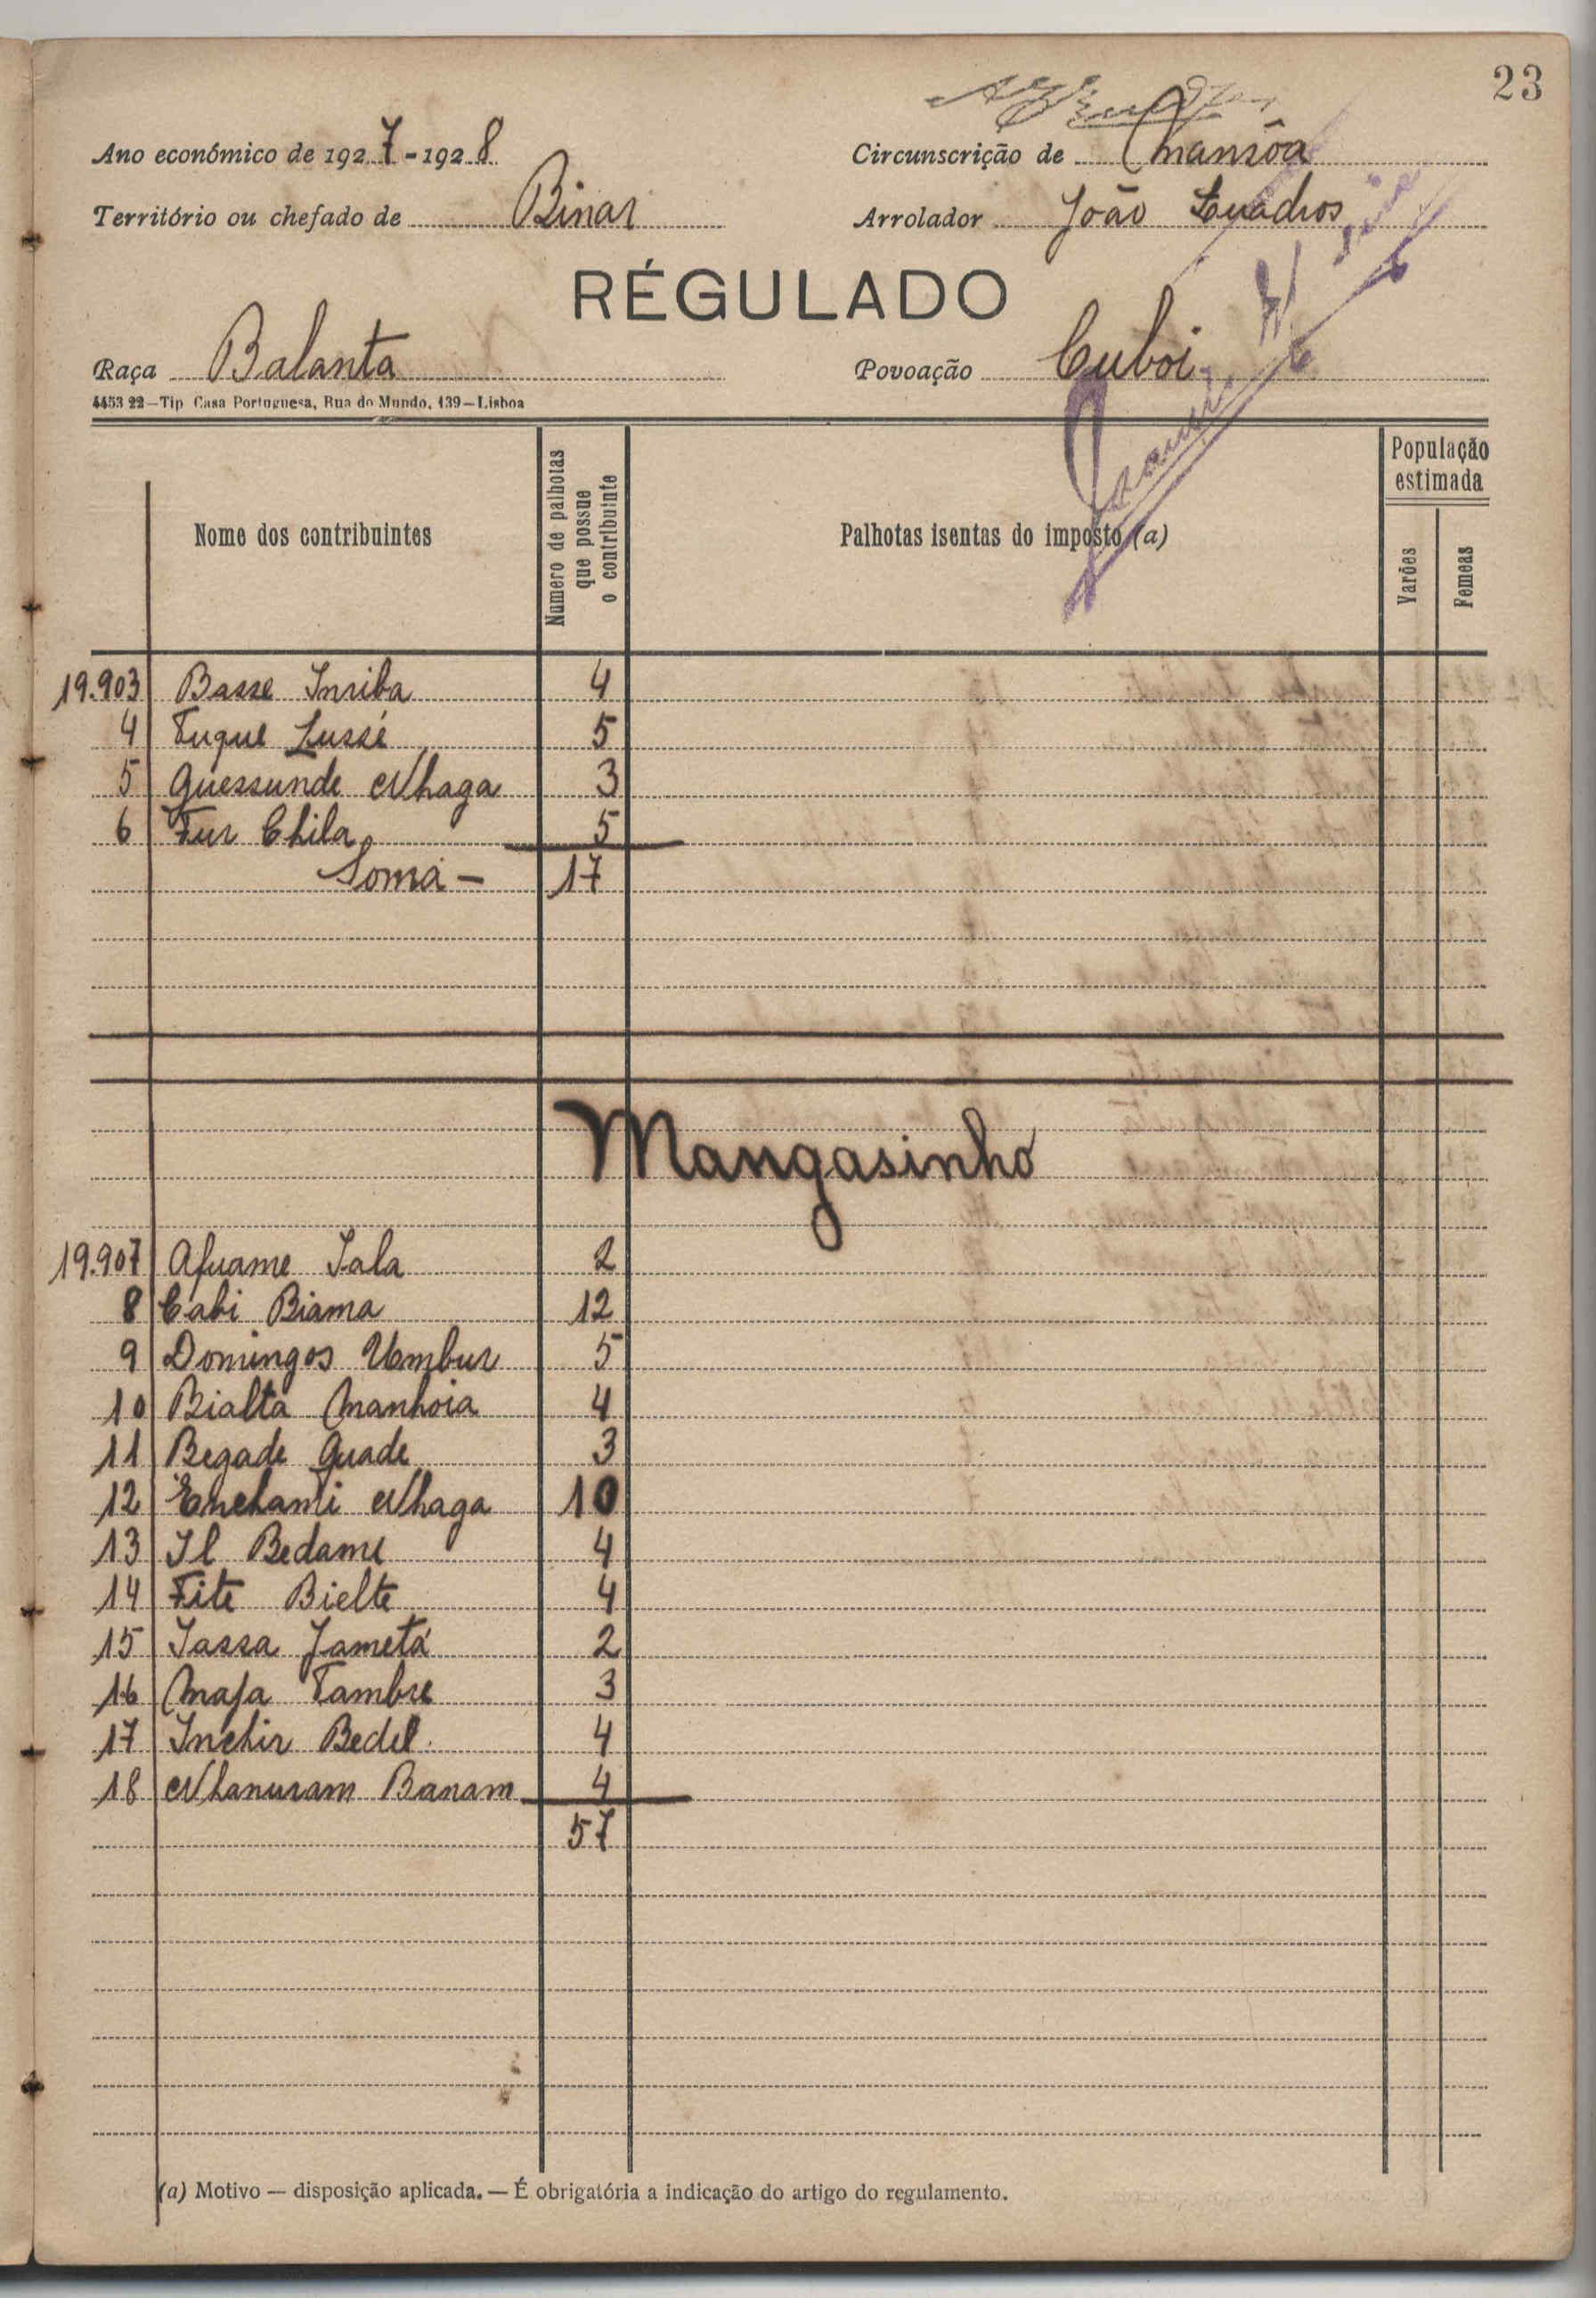 23
Ano económico de 1927-1928
Circunscrição de Mansôa
Território ou chefado de Binar
Arrolador João Quadros
RÉGULADO
Raça Balanta
Povoação Cuboi
4453 22—Tip Casa Portuguesa, Rua do Mundo, 139—Lisboa
Nome dos contribuintes
Numero de palhotas que possue o contribuinte
Palhotas isentas do imposto (a)
População estimada
Varões
Femeas
19.903 Basse Insiba 4
4 Fuque Lussé 5
5 Guessunde Nhaga 3
6 Fur Chila 5
Soma — 17
Mangasinho
19.907 Afuame Sala 2
8 Cabi Biama 12
9 Domingos Umbur 5
10 Bialta Manhoia 4
11 Begade Guade 3
12 Enchami Nhaga 10
13 Il Bedame 4
14 Fite Bielte 4
15 Iassa Jametá 2
16 Mafa Tambre 3
17 Inchir Bedel 4
18 Nhanuram Banam 4
57
(a) Motivo — disposição aplicada. — É obrigatória a indicação do artigo do regulamento.